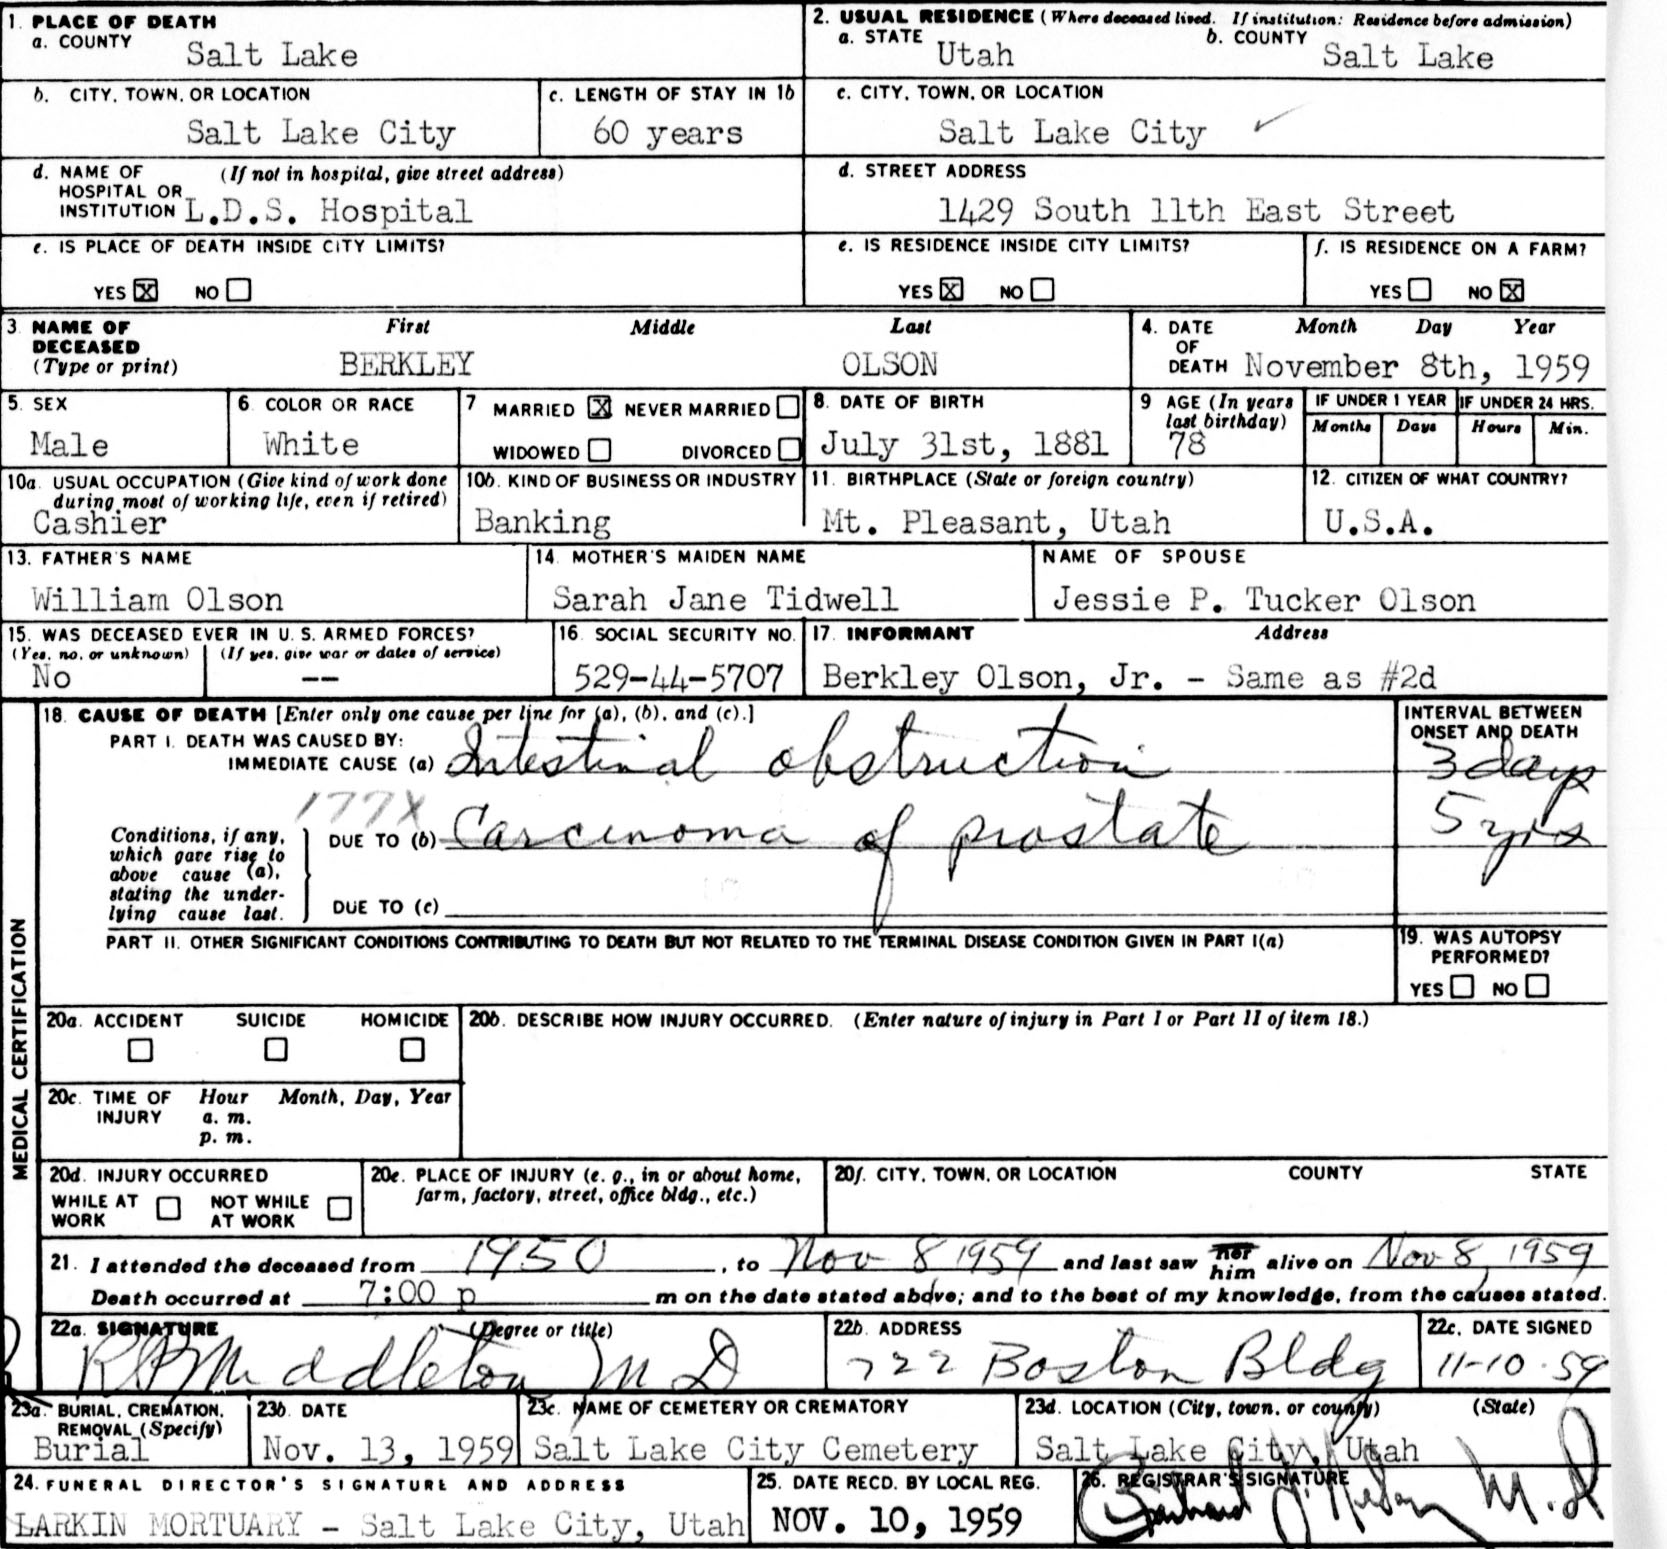 1. PLACE OF DEATH
a. COUNTY
Salt Lake
2. USUAL RESIDENCE (Where deceased lived. If institution: Residence before admission)
a. STATE
Utah
b. COUNTY
Salt Lake
b. CITY, TOWN, OR LOCATION
Salt Lake City
c. LENGTH OF STAY IN 1b
60 years
c. CITY, TOWN, OR LOCATION
Salt Lake City
d. NAME OF HOSPITAL OR INSTITUTION
(If not in hospital, give street address)
L.D.S. Hospital
d. STREET ADDRESS
1429 South 11th East Street
e. IS PLACE OF DEATH INSIDE CITY LIMITS?
YES X NO
e. IS RESIDENCE INSIDE CITY LIMITS?
YES X NO
f. IS RESIDENCE ON A FARM?
YES NO X
3. NAME OF DECEASED (Type or print)
First Middle Last
BERKLEY OLSON
4. DATE OF DEATH
Month Day Year
November 8th, 1959
5. SEX
Male
6. COLOR OR RACE
White
7 MARRIED X NEVER MARRIED
WIDOWED DIVORCED
8. DATE OF BIRTH
July 31st, 1881
9 AGE (In years last birthday)
78
IF UNDER 1 YEAR
Months Days
IF UNDER 24 HRS.
Hours Min.
10a. USUAL OCCUPATION (Give kind of work done during most of working life, even if retired)
Cashier
10b. KIND OF BUSINESS OR INDUSTRY
Banking
11. BIRTHPLACE (State or foreign country)
Mt. Pleasant, Utah
12. CITIZEN OF WHAT COUNTRY?
U.S.A.
13. FATHER'S NAME
William Olson
14. MOTHER'S MAIDEN NAME
Sarah Jane Tidwell
NAME OF SPOUSE
Jessie P. Tucker Olson
15. WAS DECEASED EVER IN U. S. ARMED FORCES?
(Yes, no, or unknown) (If yes, give war or dates of service)
No --
16. SOCIAL SECURITY NO.
529-44-5707
17. INFORMANT Address
Berkley Olson, Jr. - Same as #2d
MEDICAL CERTIFICATION
18. CAUSE OF DEATH [Enter only one cause per line for (a), (b), and (c).]
PART I. DEATH WAS CAUSED BY:
IMMEDIATE CAUSE (a) Intestinal obstruction
INTERVAL BETWEEN ONSET AND DEATH
3 days
177X
Conditions, if any, which gave rise to above cause (a), stating the underlying cause last.
DUE TO (b) Carcinoma of prostate
5 yrs
DUE TO (c)
PART II. OTHER SIGNIFICANT CONDITIONS CONTRIBUTING TO DEATH BUT NOT RELATED TO THE TERMINAL DISEASE CONDITION GIVEN IN PART I(a)
19. WAS AUTOPSY PERFORMED?
YES NO
20a. ACCIDENT SUICIDE HOMICIDE
20b. DESCRIBE HOW INJURY OCCURRED. (Enter nature of injury in Part I or Part II of item 18.)
20c. TIME OF INJURY
Hour Month, Day, Year
a. m.
p. m.
20d. INJURY OCCURRED
WHILE AT WORK NOT WHILE AT WORK
20e. PLACE OF INJURY (e. g., in or about home, farm, factory, street, office bldg., etc.)
20f. CITY, TOWN, OR LOCATION COUNTY STATE
21. I attended the deceased from 1950, to Nov 8 1959 and last saw her him alive on Nov 8, 1959
Death occurred at 7:00 p m on the date stated above; and to the best of my knowledge, from the causes stated.
22a. SIGNATURE (Degree or title)
Middleton M D
22b. ADDRESS
722 Boston Bldg
22c. DATE SIGNED
11-10-59
23a. BURIAL, CREMATION, REMOVAL (Specify)
Burial
23b. DATE
Nov. 13, 1959
23c. NAME OF CEMETERY OR CREMATORY
Salt Lake City Cemetery
23d. LOCATION (City, town, or county) (State)
Salt Lake City, Utah
24. FUNERAL DIRECTOR'S SIGNATURE AND ADDRESS
LARKIN MORTUARY - Salt Lake City, Utah
25. DATE RECD. BY LOCAL REG.
NOV. 10, 1959
26. REGISTRAR'S SIGNATURE
M.D.